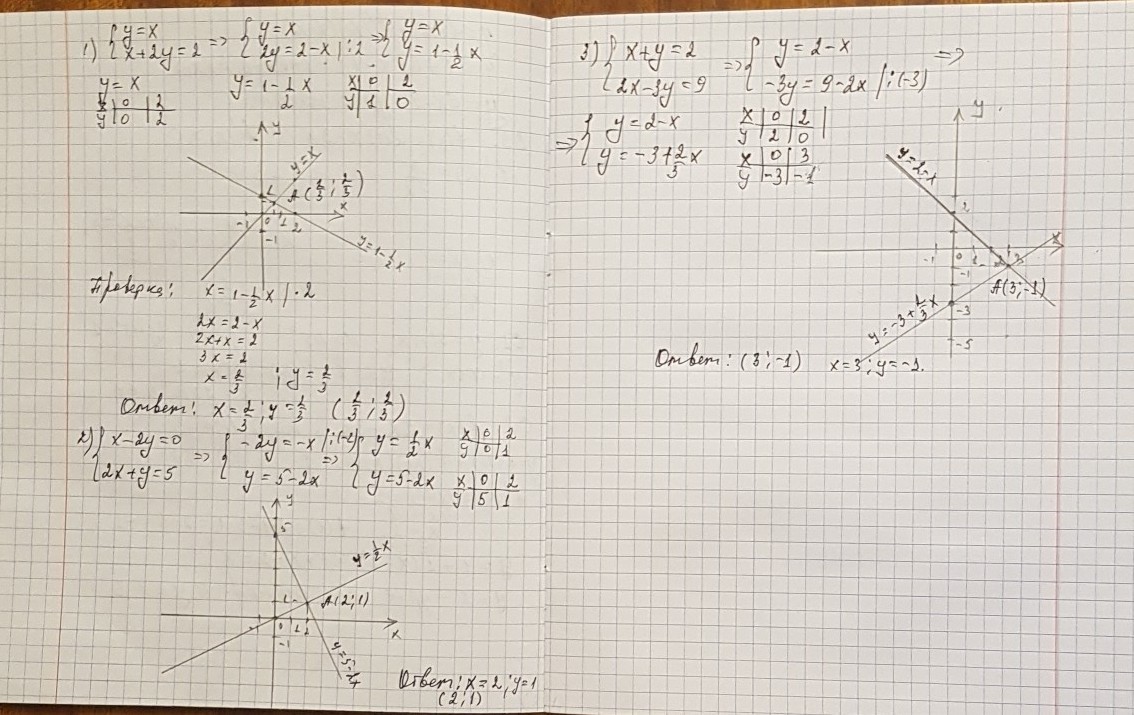 1) { y=x
x+2y=2 => { y=x
2y=2-x |:2 => { y=x
y=1-1/2x
y=x
x | 0 | 2
y | 0 | 2
y=1-1/2x
x | 0 | 2
y | 1 | 0
y
y=x
1
A(2/3; 2/3)
x
-1 0 1 2
-1
y=1-1/2x
Проверка: x=1-1/2x |·2
2x=2-x
2x+x=2
3x=2
x=2/3 ; y=2/3
Ответ: x=2/3; y=2/3 (2/3; 2/3)
2) { x-2y=0
2x+y=5 => { -2y=-x |:(-2)
y=5-2x => { y=1/2x
y=5-2x
x | 0 | 2
y | 0 | 1
x | 0 | 2
y | 5 | 1
y
5
y=1/2x
1
A(2;1)
0 1 2
x
-1
y=5-2x
Ответ: x=2; y=1
(2;1)
3) { x+y=2
2x-3y=9 => { y=2-x
-3y=9-2x |:(-3) =>
=> { y=2-x
y=-3+2/3x
x | 0 | 2
y | 2 | 0
x | 0 | 3
y | -3 | -1
y
y=2-x
2
x
-1 0 1 2 3
-1
A(3;-1)
-3
y=-3+2/3x
-5
Ответ: (3;-1) x=3; y=-1.